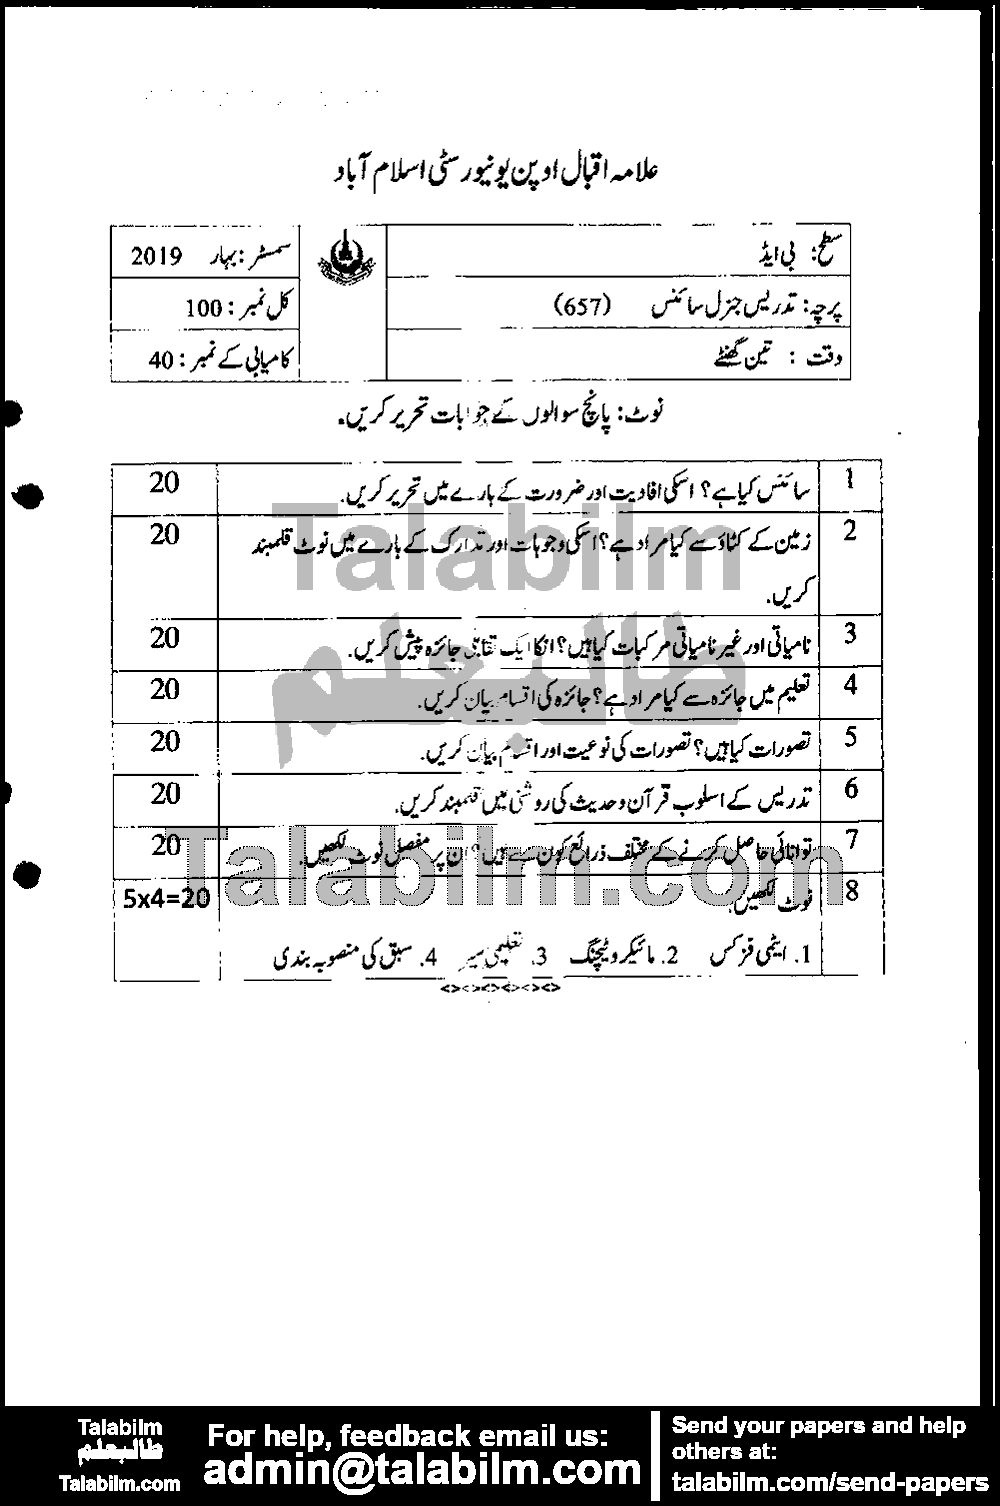 علامہ اقبال اوپن یونیورسٹی اسلام آباد
سطح: بی ایڈ
سمسٹر: بہار 2019
پرچہ: تدریس جنرل سائنس (657)
کل نمبر: 100
وقت : تین گھنٹے
کامیابی کے نمبر: 40
نوٹ: پانچ سوالوں کے جوابات تحریر کریں۔
1 سائنس کیا ہے؟ اسکی افادیت اور ضرورت کے بارے میں تحریر کریں۔ 20
2 زمین کے کٹاؤ سے کیا مراد ہے؟ اسکی وجوہات اور تدارک کے بارے میں نوٹ قلمبند 20
کریں۔
3 نامیاتی اور غیر نامیاتی مرکبات کیا ہیں؟ انکا ایک تقابلی جائزہ پیش کریں۔ 20
4 تعلیم میں جائزہ سے کیا مراد ہے؟ جائزہ کی اقسام بیان کریں۔ 20
5 تصورات کیا ہیں؟ تصورات کی نوعیت اور اقسام بیان کریں۔ 20
6 تدریس کے اسلوب قرآن و حدیث کی روشنی میں قلمبند کریں۔ 20
7 توانائی حاصل کرنے کے مختلف ذرائع کون سے ہیں؟ ان پر مفصل نوٹ لکھیں۔ 20
8 نوٹ لکھیں۔ 5x4=20
1. ایٹمی فزکس 2. مائیکرو ٹیچنگ 3. تعلیمی سیر 4. سبق کی منصوبہ بندی
Talabilm
طالبعلم
Talabilm.com
Talabilm
طالبعلم
Talabilm.com
For help, feedback email us:
admin@talabilm.com
Send your papers and help
others at:
talabilm.com/send-papers